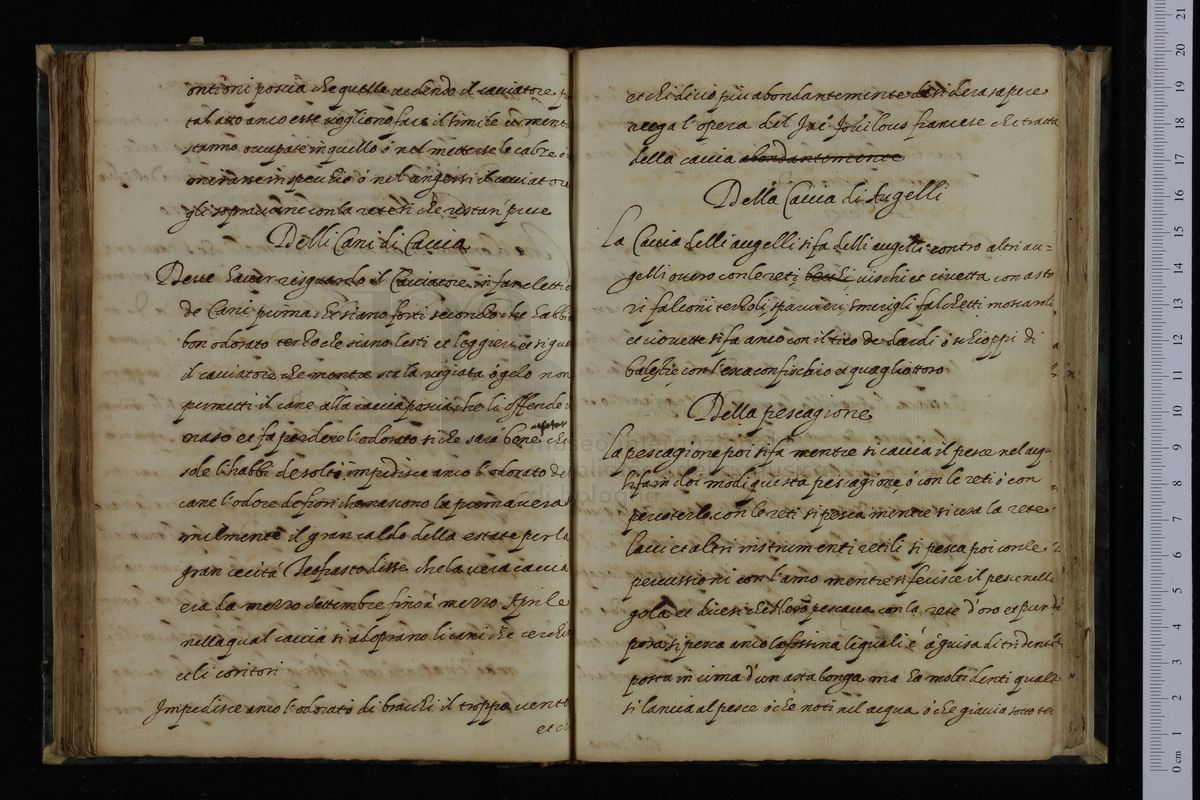 ontioni poscia che quelle vedendo il cacciatore
tal atto anco esse vogliono fare il simile
stanno occupate in quello ó nel mettersi le calze ó
mirarsi in specchio ó nel ungersi il cacciatore
gli sopraviene con la rete si che restan' prese
Delli Cani di Caccia
Deve haver risguardo il Cacciatore in fare lettio
de Cani prima che siano forti secondo che habbi
bon odorato terzo che siano lesti et leggieri et si
il cacciatore che mentre sta la rugiata ó gelo non
permetti il cane alla caccia poscia che li offende
naso et fa perdere l'odorato si che sará bene che
sole l'habbi desolto, impedisce anco l'odorato de
cane l'odore de fiori che nascono la primavera
milmente il gran caldo della estate per la
gran Teofrasto disse che la vera caccia
era da mezzo settembre fino á mezzo Aprile
nella qual caccia si adoprano li cani che
et li corritori
Impedisce anco l'odorato di bracchi il troppo vento
et ch
et chi di ció piú abondantemente desidera sapere
vegga l'opera del francese che tratta
della caccia abondantemente
Della Caccia di Augelli
La Caccia delli augelli si fa delli augelli contro altri au=
gelli overo con le reti, vischi et civetta con asto
ri falconi terzoli sparvieri smerigli falchetti moscaroli
et civette si fa anco con il tiro de dardi ó schioppi di
balestre con l'esca con fischio et quagliottoro
Della pescagione
La pescagione poi si fa mentre si caccia il pesce nel acqu
si fa in doi modi questa pescagione, ó con le reti ó con
percoterlo, con le reti si pesca mentre si usa la rete
lacci et altri instrumenti retili si pesca poi con le
percussioni con l'amo mentre si ferisce il pesce nella
gola et dicesi che Nero pescava con la rete d'oro et pur di
pora si pesca anco la fossina li quali é á guisa di tridente
posta in cima d'un asta longa ma ha molti denti quale
si lancia al pesce ó che noti nel acqua ó che giacia sotto